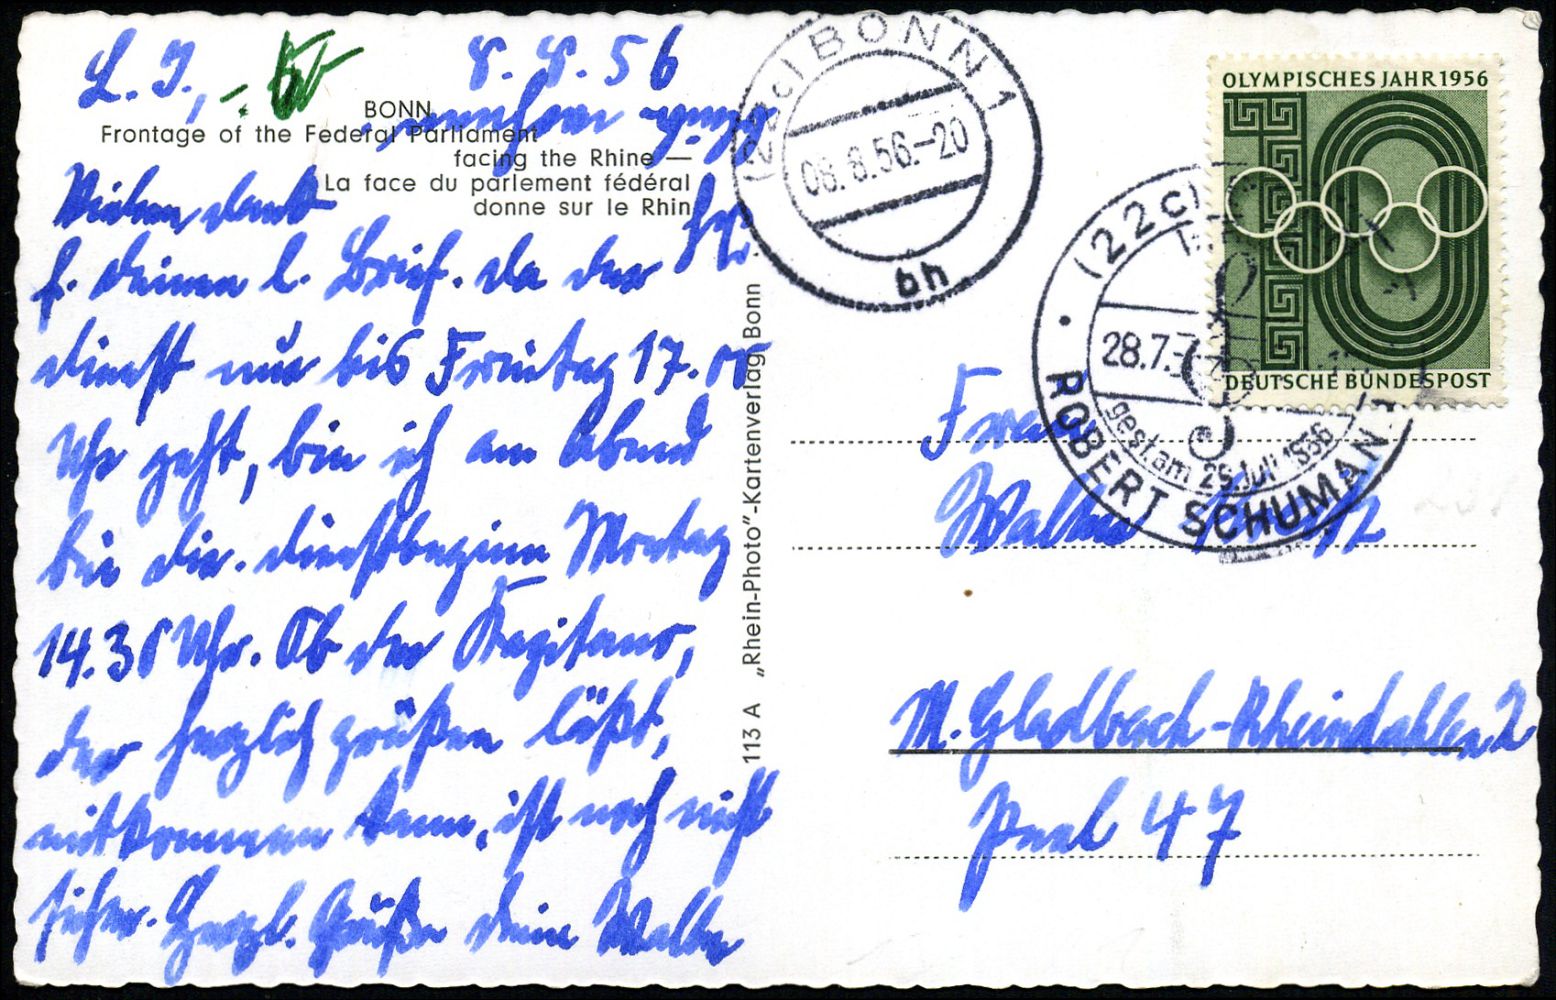 L. I., 8. 8. 56
BONN
Frontage of the Federal Parliament
facing the Rhine —
La face du parlement fédéral
donne sur le Rhin
Vielen Dank
f. Deinen l. Brief. Da der
Dienst nur bis Freitag 17.00
Uhr geht, bin ich am Abend
bei Dir. Dienstbeginn Montag
14.30 Uhr. Ob der Kapitano,
der herzlich grüßen läßt,
mitkommen kann, ist noch nicht
sicher. Herzl. Grüße Dein Walter
113 A „Rhein-Photo"-Kartenverlag Bonn
(22c) BONN 1
08.8.56.-20
bh
(22c)
28.7.
gest. am 29. Juli 1856
ROBERT SCHUMANN
OLYMPISCHES JAHR 1956
DEUTSCHE BUNDESPOST
Frau
M. Gladbach-Rheindahlen 2
Peel 47